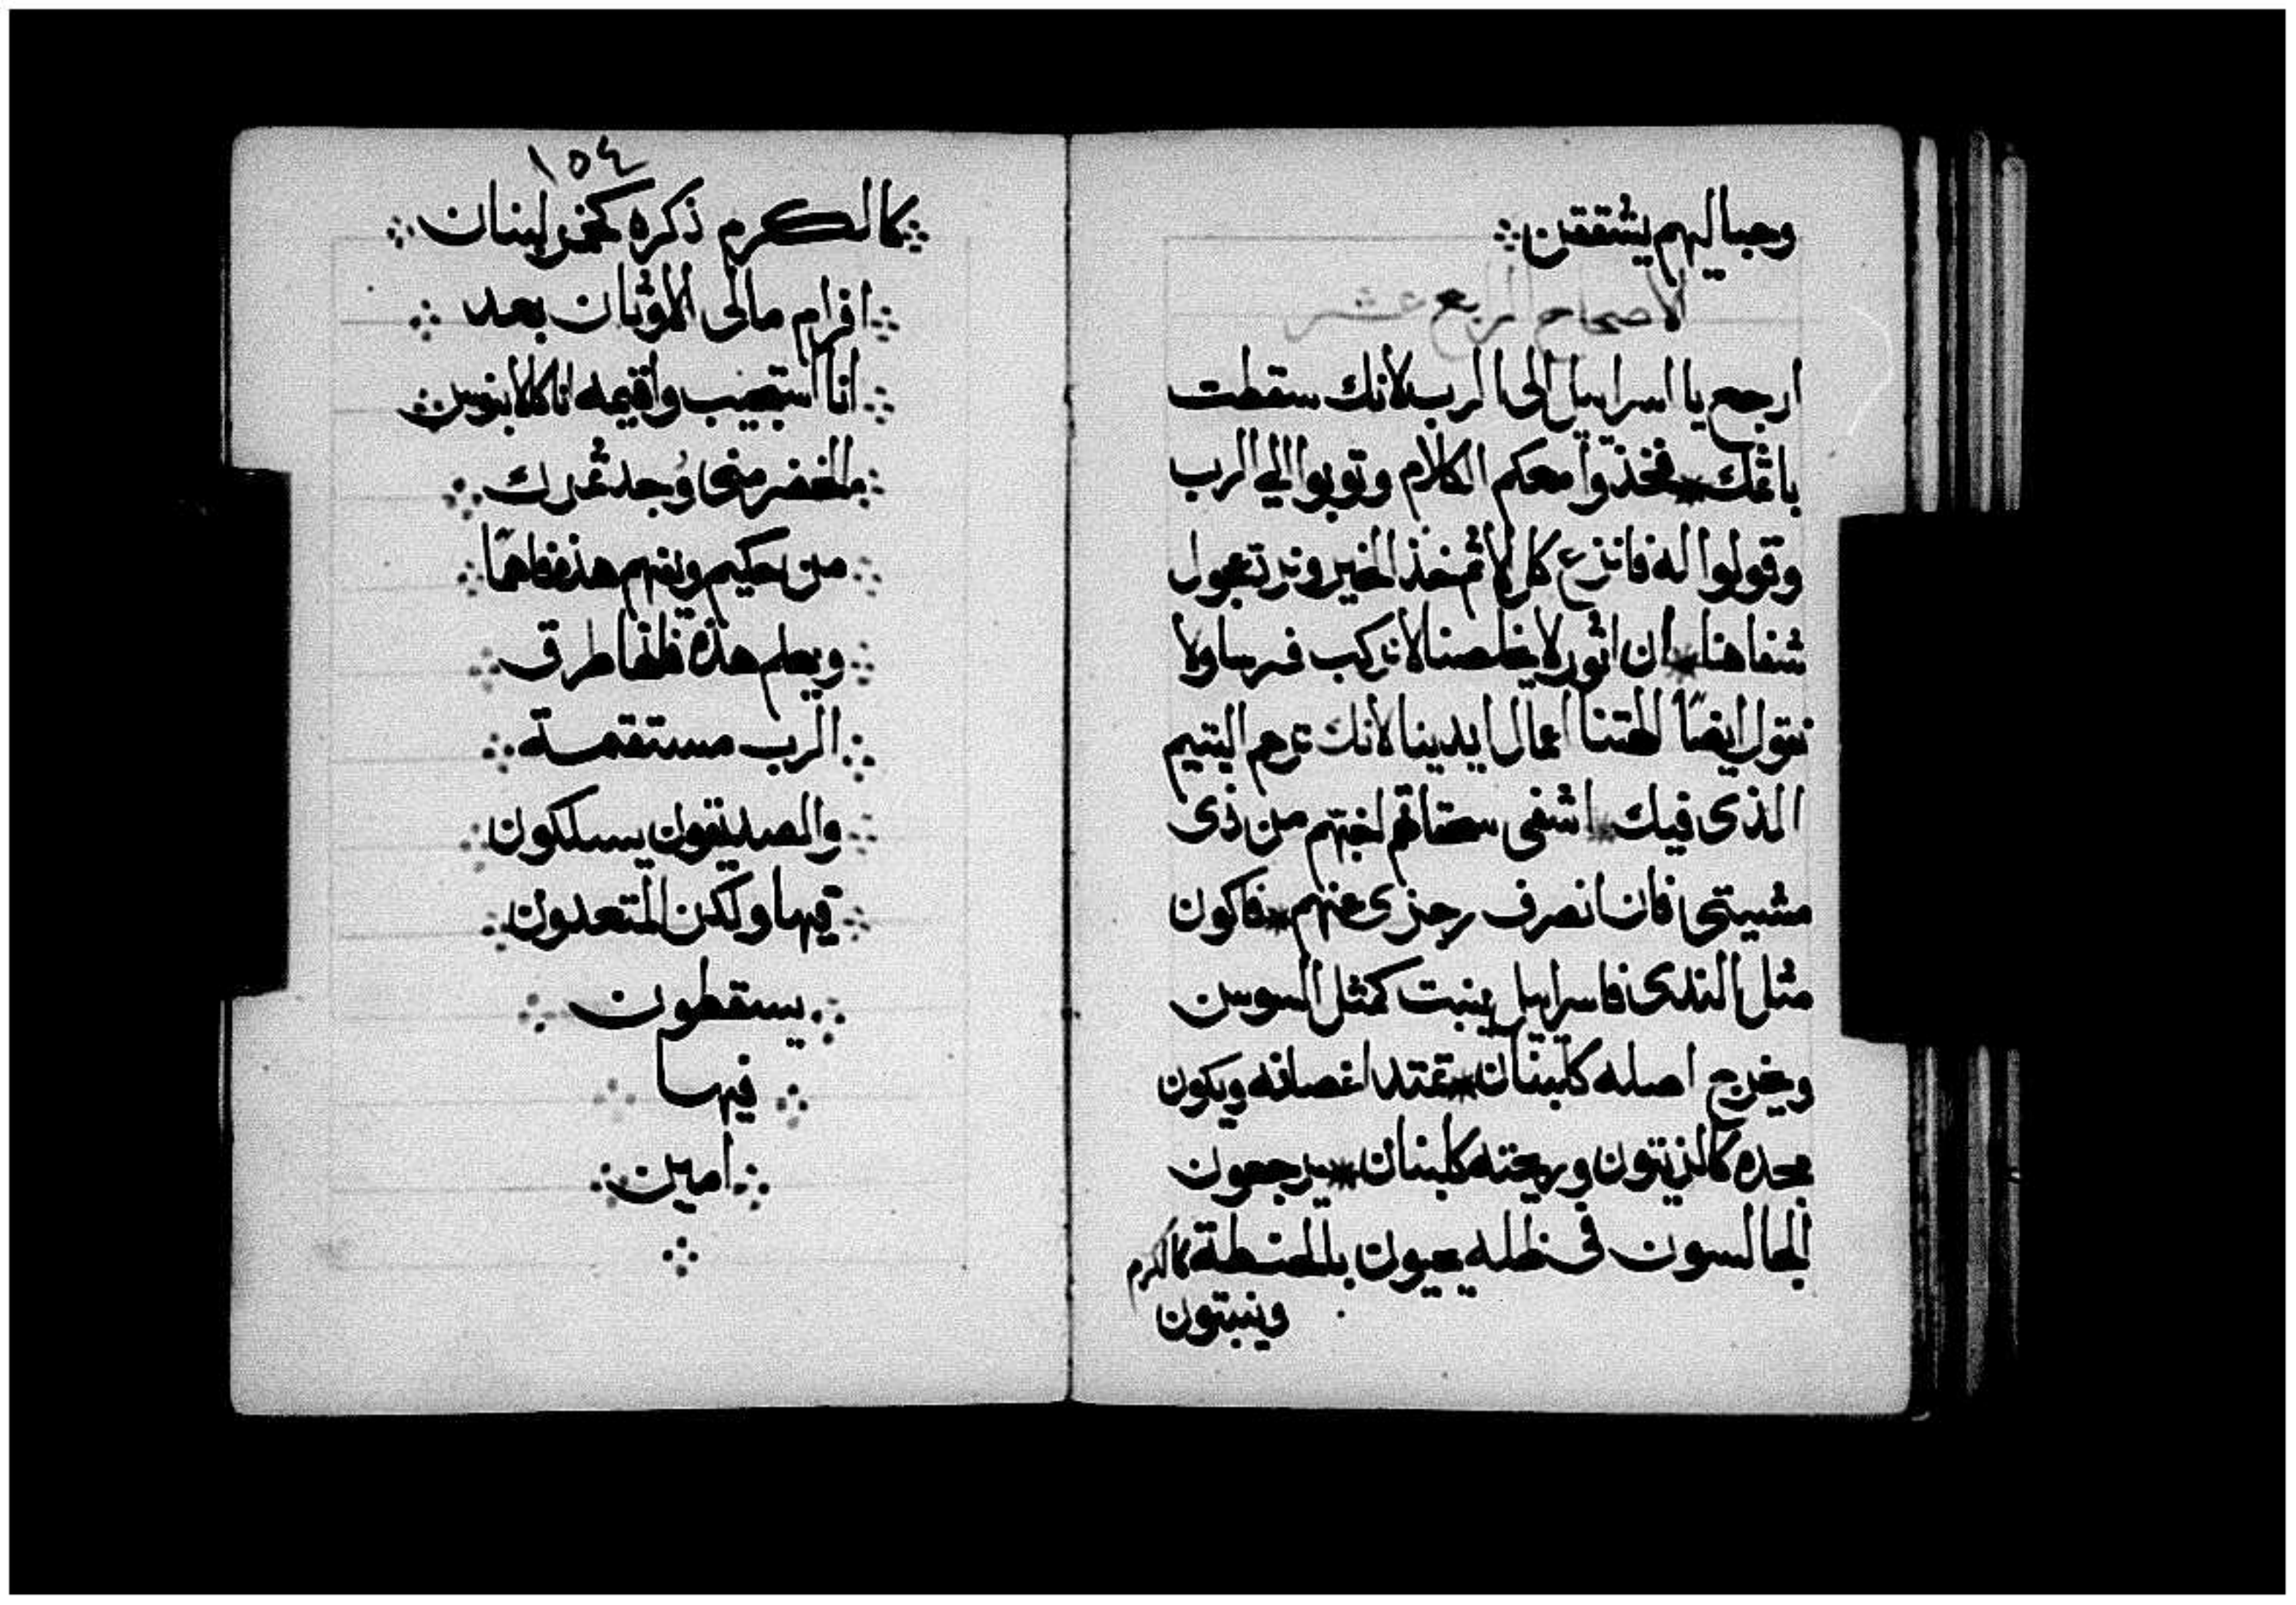 وحباليهم يشققن
الاصحاح الرابع عشر
ارجع يا اسراييل الى الرب لانك سقطت
باثمك فخذوا معكم الكلام وتوبوا الي الرب
وقولوا له فانزع كل الاثم خذ الخير ونرد عجول
شفاهنا ان اثور لا يخلصنا لا نركب فرسا ولا
نقول ايضًا الهتنا اعمال ايدينا لانك ترحم اليتيم
الذى فيك اشفى من ذى
مشييتى فان انصرف رجزى عنهم فاكون
مثل الندى فاسراييل ينبت كمثل السوسن
ويخرج اصله كلبنان تمتد اغصانه ويكون
مجده كالزيتون وريحته كلبنان يرجعون
الجالسون فى ظله يحيون بالحنطة كالكرم
وينبتون
١٥٤
كالكرم ذكره كخمر لبنان
افرام مالى الاوثان بعد
انا استجيب واقيمه انا
وجد ثمرك
من حكيم ويفهم هذه
ويعلم هذه طرق
الرب مستقمة
والصديقون يسلكون
فيها ولكن المتعدون
يسقطون
فيها
امين